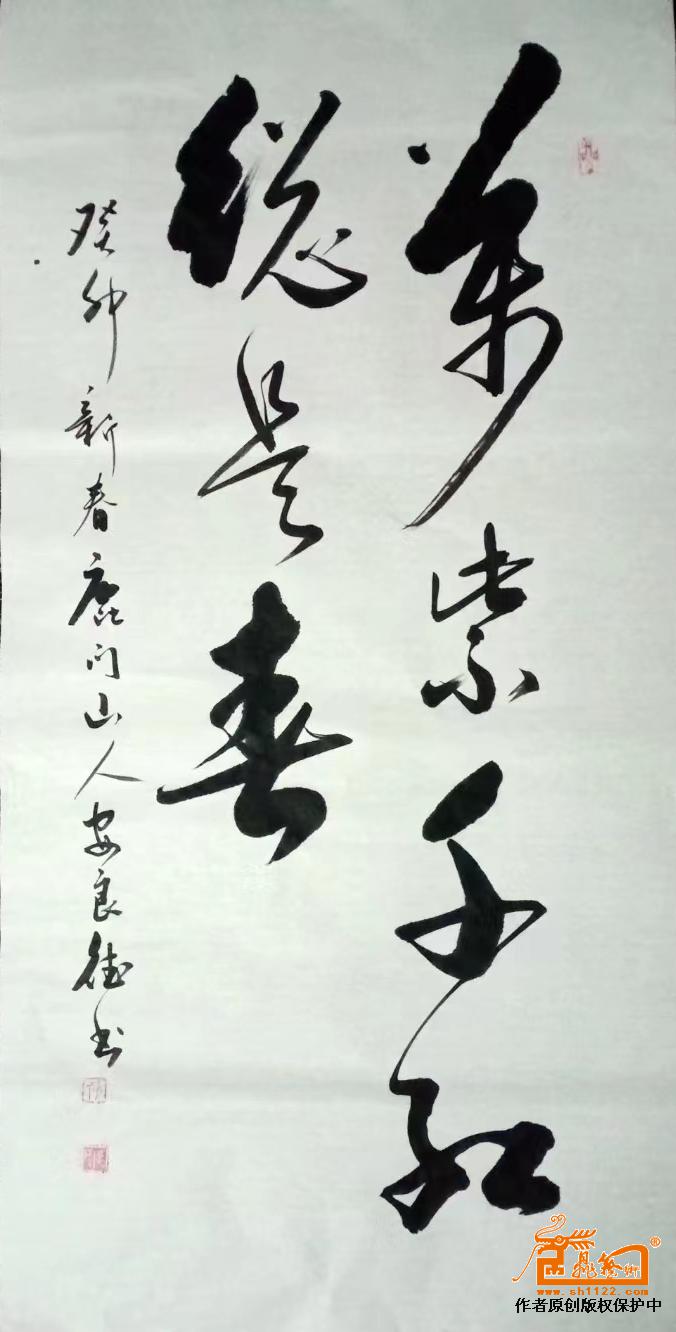 萬紫千紅
總是春
癸卯新春鹿门山人安良德书
www.sh1122.com
作者原创版权保护中